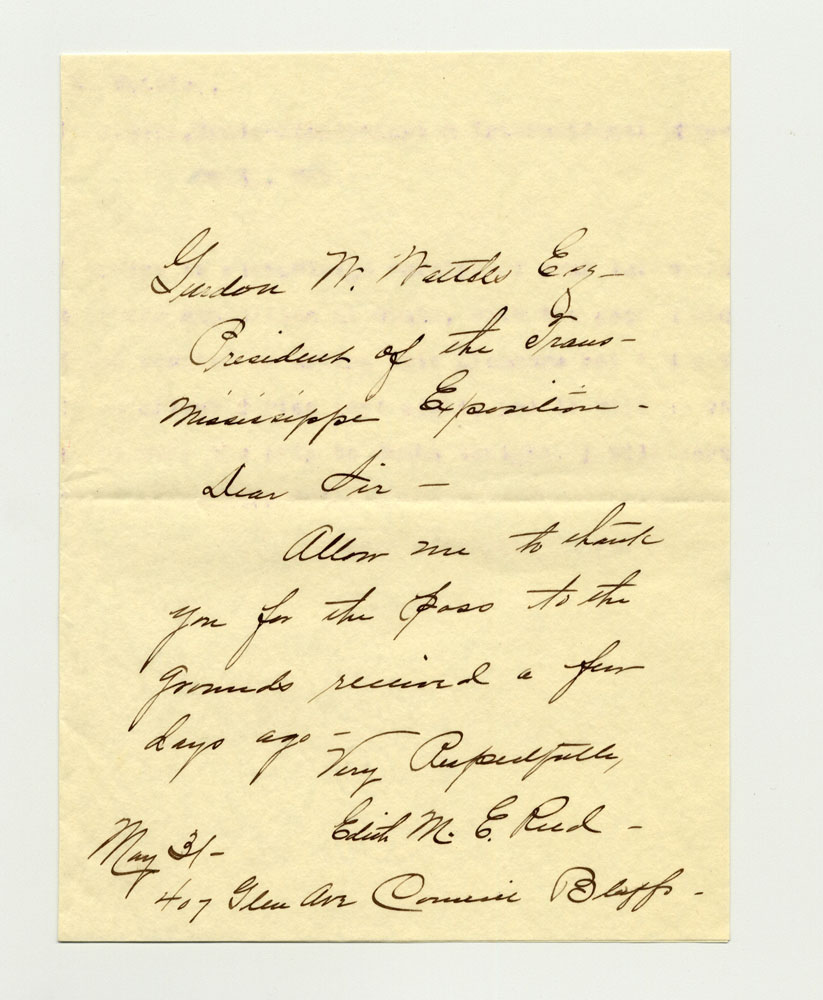 Gurdon W. Wattles Esq –
President of the Trans-
Mississippi Exposition –
Dear Sir –
Allow me to thank
you for the pass to the
grounds received a few
days ago –
Very Respectfully,
Edith M. E. Reed –
May 31 –
407 Glen Ave Council Bluffs –